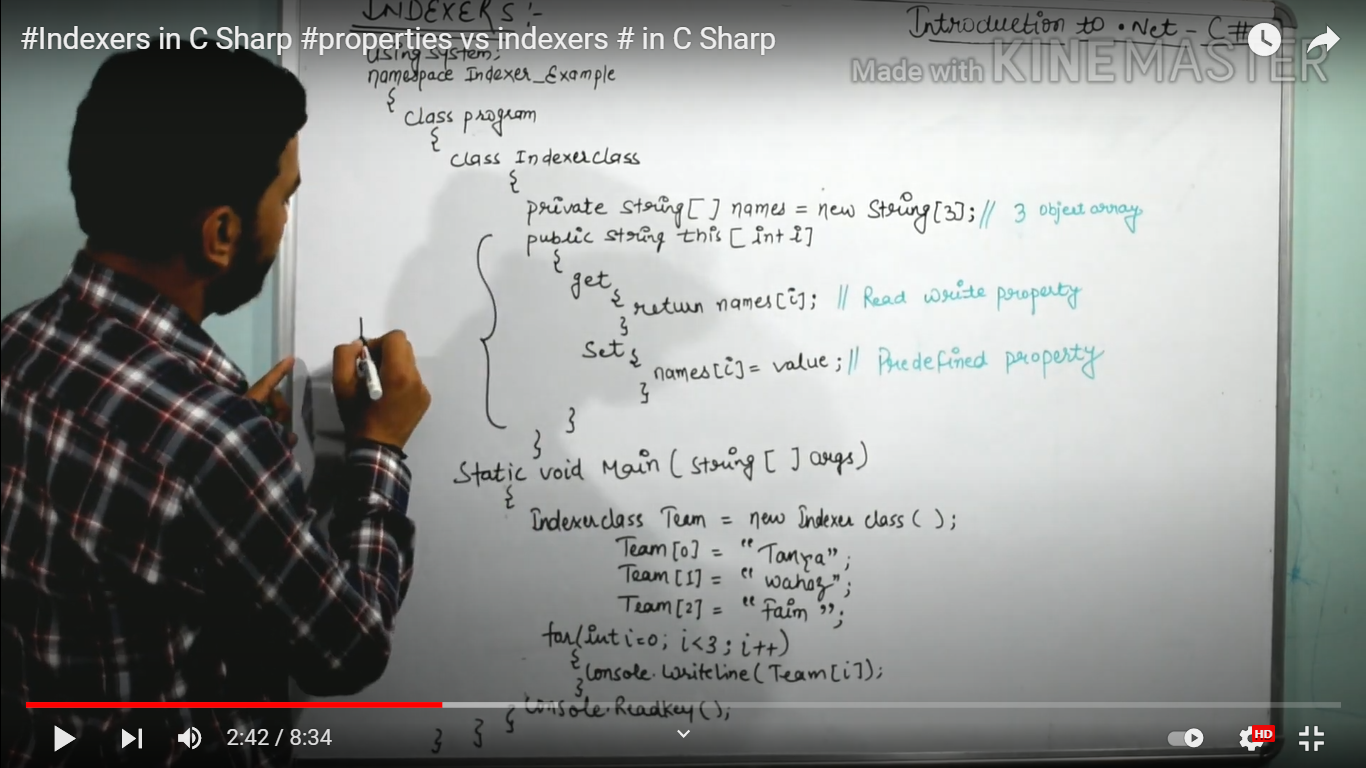 INDEXERS :-
Introduction to .Net - C#
#Indexers in C Sharp #properties vs indexers # in C Sharp
Made with KINEMASTER
using system;
namespace Indexer_Example
{
class program
{
class Indexerclass
{
private string[ ] names = new String[3]; // 3 object array
public string this [ int i]
{
get
{ return names[i]; // Read write property
}
Set {
names[i] = value ; // Predefined property
}
}
}
Static void Main ( string [ ] args)
{
Indexerclass Team = new Indexer class ( );
Team [0] = "Tanya";
Team [1] = "wahaz";
Team [2] = "Faim";
for(int i=0; i<3 ; i++)
{ Console.WriteLine( Team [i]);
}
Console.Readkey();
} } }
2:42 / 8:34
HD